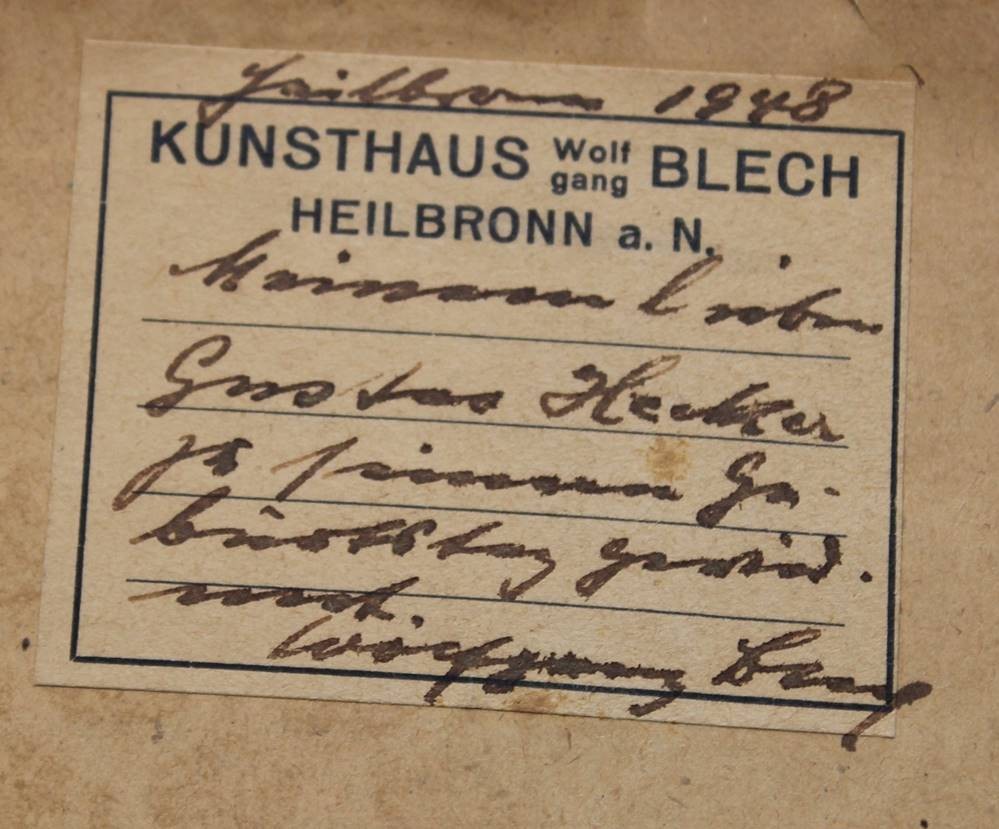 Heilbronn 1948
KUNSTHAUS Wolfgang BLECH
HEILBRONN a. N.
Meinem lieben
Gustav Hecker
zu seinem Ge-
burtstag gewid-
met.
Wolfgang Blech